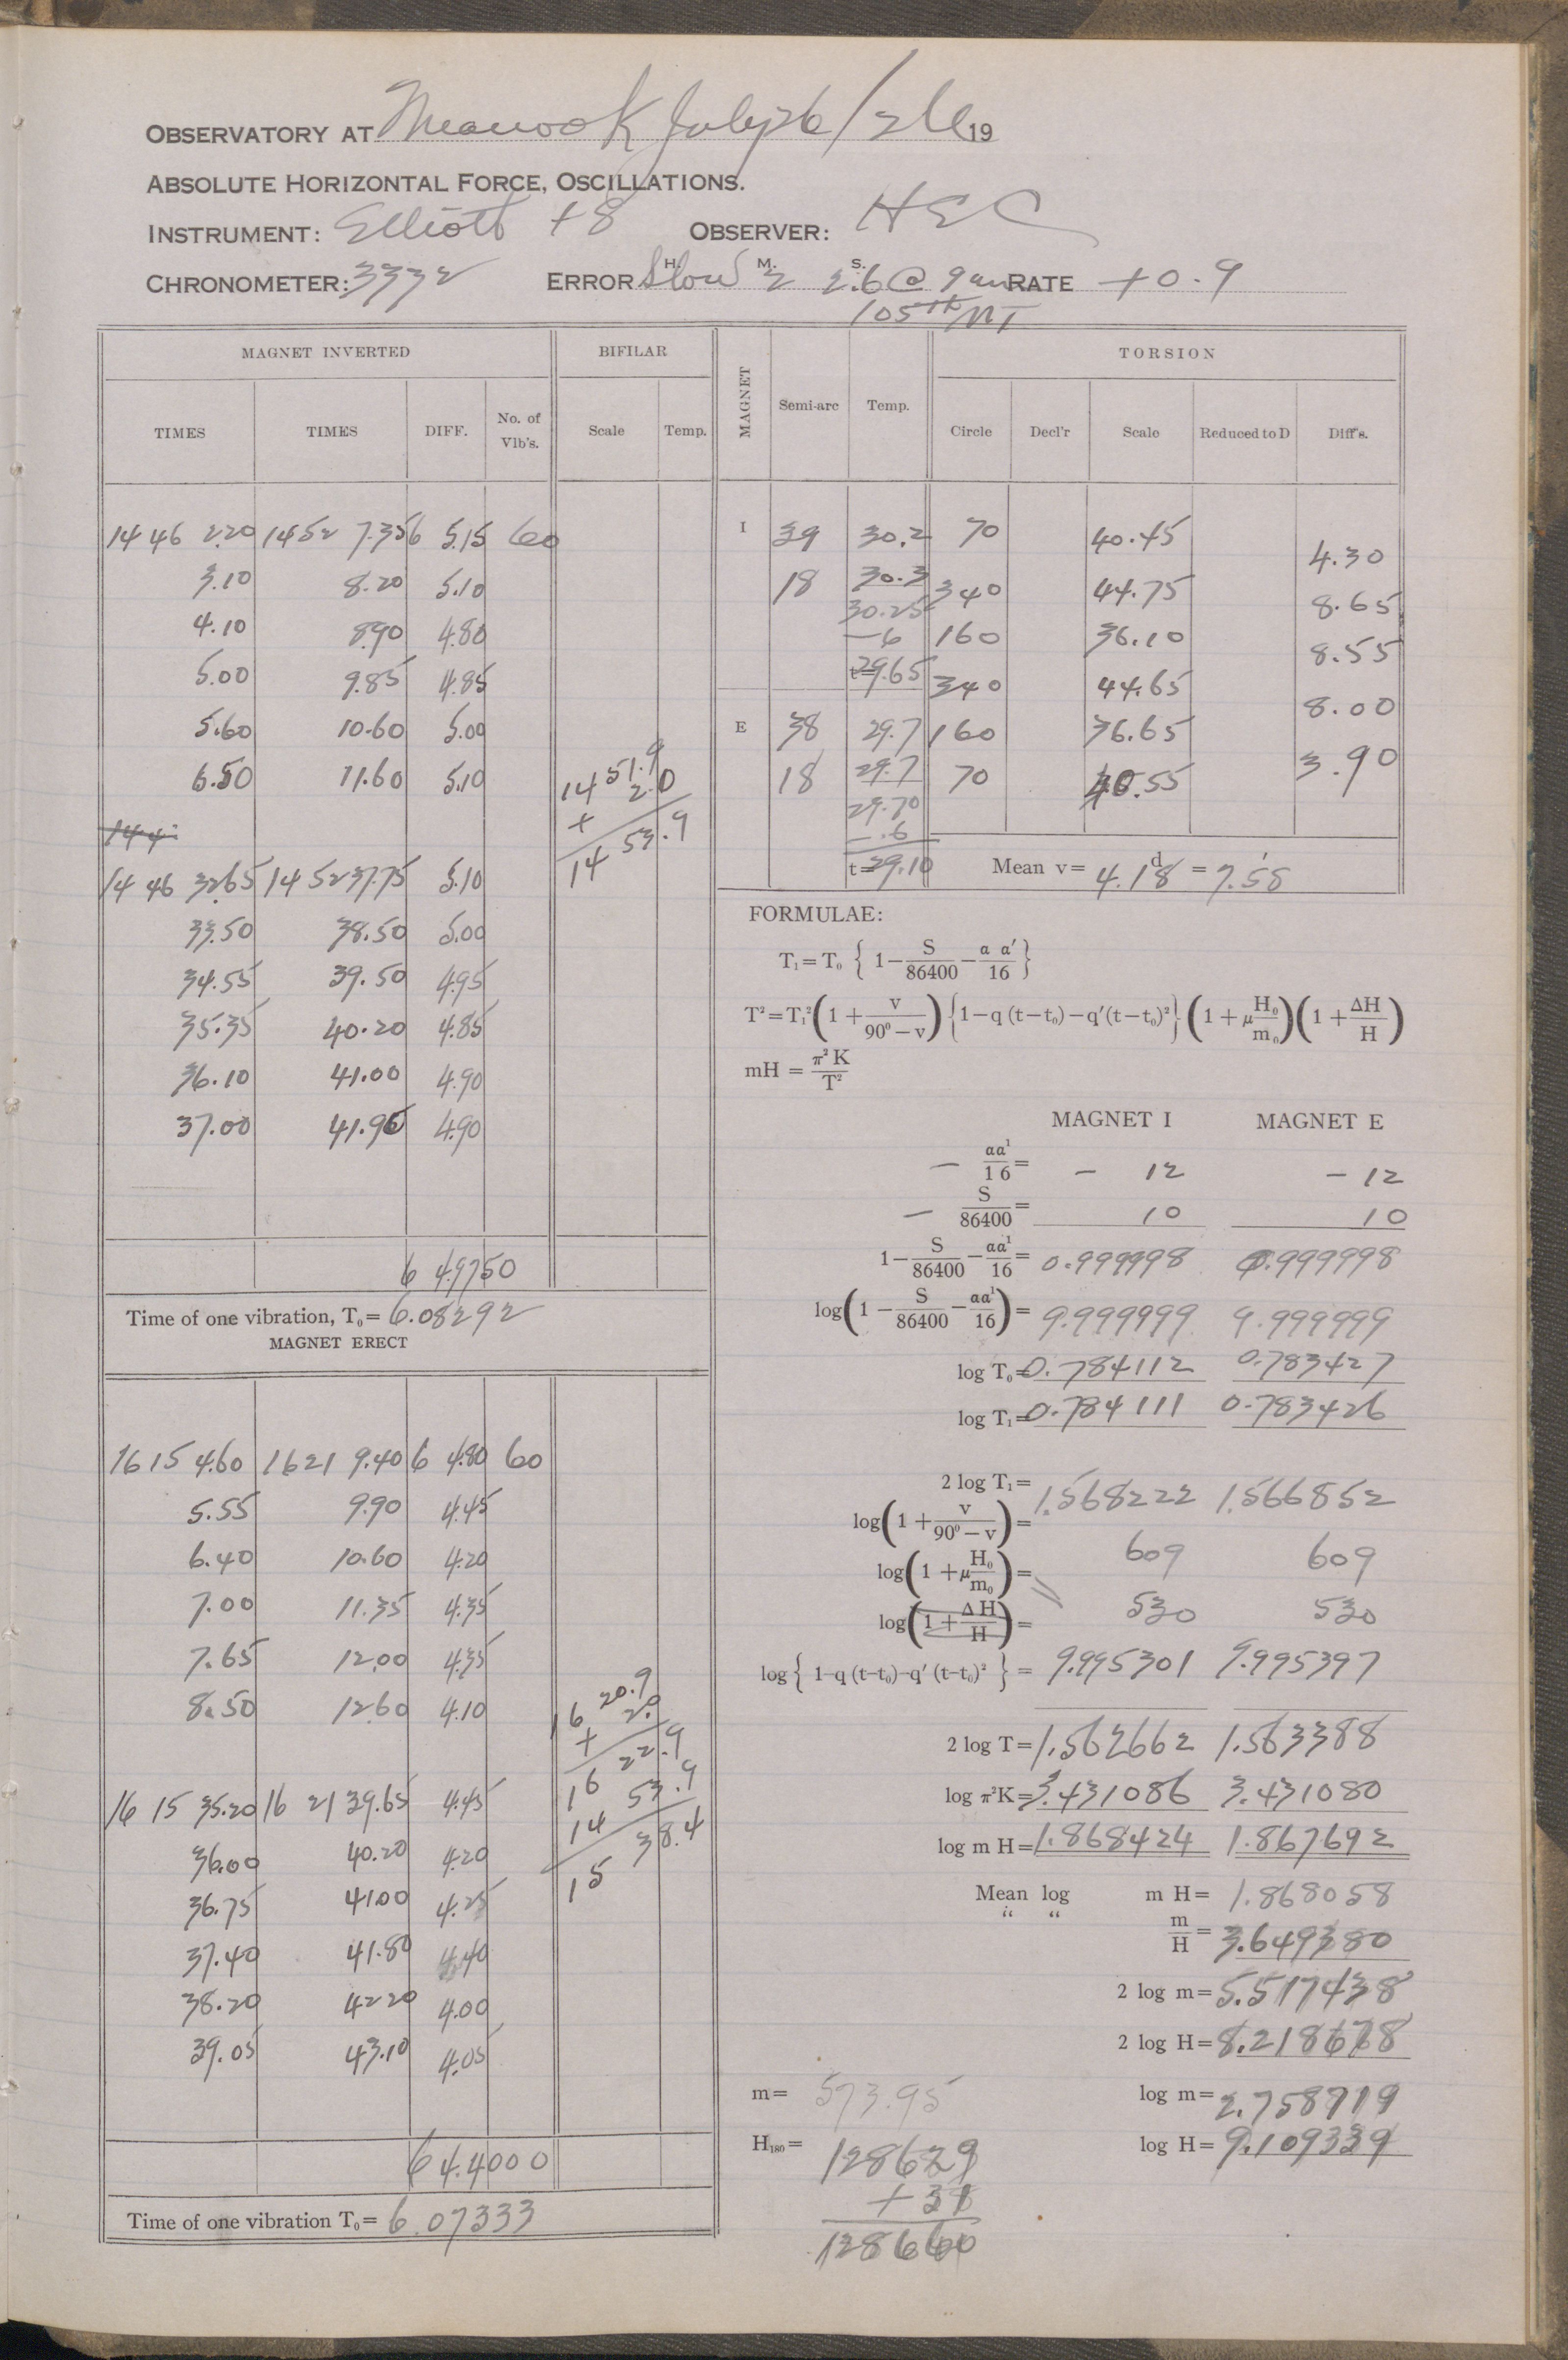 OBSERVATORY AT Meanook July 26/26 19
ABSOLUTE HORIZONTAL FORCE, OSCILLATIONS.
INSTRUMENT: Elliott +8 OBSERVER: HEC
CHRONOMETER: 3332 ERROR Slow H. M. 2 S. 2.6 @ 9am RATE +0.9
105th MT
MAGNET INVERTED BIFILAR
TIMES TIMES DIFF. No. of Vib's. Scale Temp.
14 46 2.20 14 52 7.35 6 5.15 60
3.10 8.20 5.10
4.10 8.90 4.80
5.00 9.85 4.85
5.60 10.60 5.00
6.50 11.60 5.10
14 51.9
+ 2.0
14 53.9
14 4
14 46 32.65 14 52 37.75 5.10
33.50 38.50 5.00
34.55 39.50 4.95
35.35 40.20 4.85
36.10 41.00 4.90
37.00 41.90 4.90
6 4.9750
Time of one vibration, T₀= 6.08292
MAGNET ERECT
16 15 4.60 16 21 9.40 6 4.80 60
5.55 9.90 4.45
6.40 10.60 4.20
7.00 11.35 4.35
7.65 12.00 4.35
8.50 12.60 4.10
16 20.9
+ 2.0
16 22.9
14 53.9
15 38.4
16 15 35.20 16 21 39.65 4.45
36.00 40.20 4.20
36.75 41.00 4.25
37.40 41.80 4.40
38.20 42.20 4.00
39.05 43.10 4.05
6 4.4000
Time of one vibration T₀= 6.07333
MAGNET Semi-arc Temp. TORSION
Circle Decl'r Scale Reduced to D Diff's.
I 39 30.2 70 40.45
4.30
18 30.3 340 44.75
30.25 8.65
-6 160 36.10
8.55
t=29.65 340 44.65
8.00
E 38 29.7 160 36.65
3.90
18 29.7 70 40.55
29.70
-.6
t=29.10 Mean v= 4.18ᵈ = 7.'58
FORMULAE:
T₁=T₀ { 1−S/86400−a a′/16 }
T²=T₁²(1+v/90⁰−v){1−q (t−t₀)−q′(t−t₀)²}(1+μH₀/m₀)(1+ΔH/H)
mH = π²K/T²
MAGNET I MAGNET E
− aa¹/16= − 12 − 12
− S/86400= 10 10
1−S/86400−aa¹/16= 0.999998 0.999998
log(1−S/86400−aa¹/16)= 9.999999 9.999999
log T₀= 0.784112 0.783427
log T₁= 0.784111 0.783426
2 log T₁= 1.568222 1.566852
log(1+v/90⁰−v)= 609 609
log(1+μH₀/m₀)= 530 530
log(1+ΔH/H)=
log{ 1−q (t−t₀)−q′ (t−t₀)² } = 9.995301 9.995397
2 log T= 1.562662 1.563388
log π²K= 3.431086 3.431080
log m H= 1.868424 1.867692
Mean log m H= 1.868058
“ “ m/H= 3.649380
2 log m= 5.517438
2 log H= 8.218678
m= 573.95 log m= 2.758719
H₁₈₀= 128629 log H= 9.109339
+31
128660